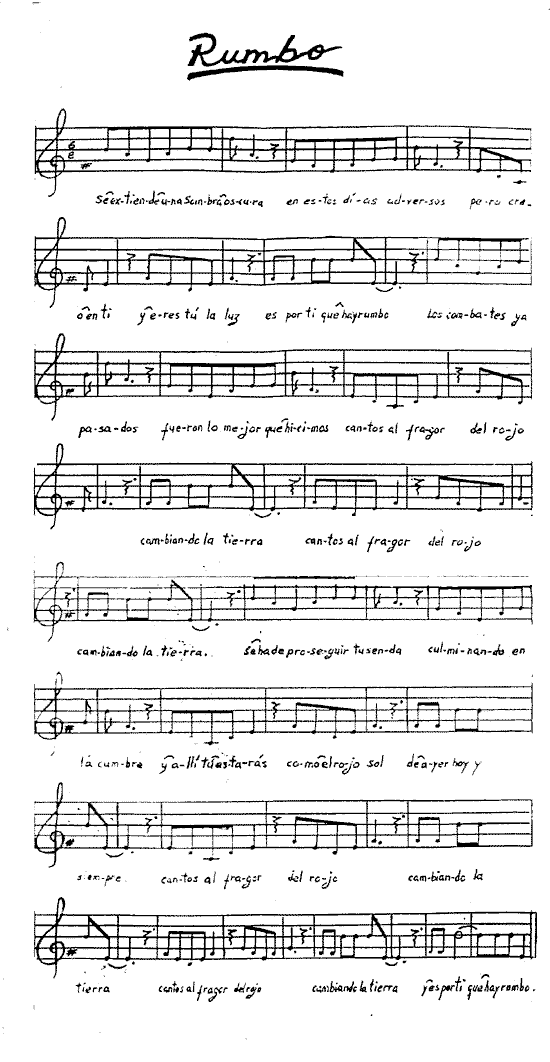 Rumbo
6
8
Sêex-tien-dêu-na Som-brâos-cu-ra en es-tos dí-as ad-ver-sos pe-ro cre-
ôen ti yê-res tú la luz es por ti quêhayrumbo Los com-ba-tes ya
pa-sa-dos fue-ron lo me-jor quêhi-ci-mos can-tos al fra-gor del ro-jo
cam-bian-do la tie-rra can-tos al fra-gor del ro-jo
cam-bian-do la tie-rra. Sêhade pro-se-guir tu sen-da cul-mi-nan-do en
la cum-bre yâ-llí tûes-ta-rás co-môelro-jo sol dêa-yer hoy y
siem-pre can-tos al fra-gor del ro-jo cam-bian-do la
tierra cantos al fragor delrojo cambiando la tierra yêsporti quêhayrumbo.